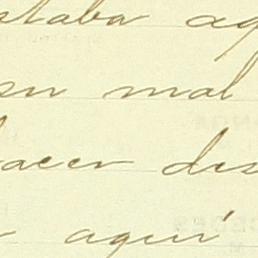 staba aq
su mal
hacer des
aquí